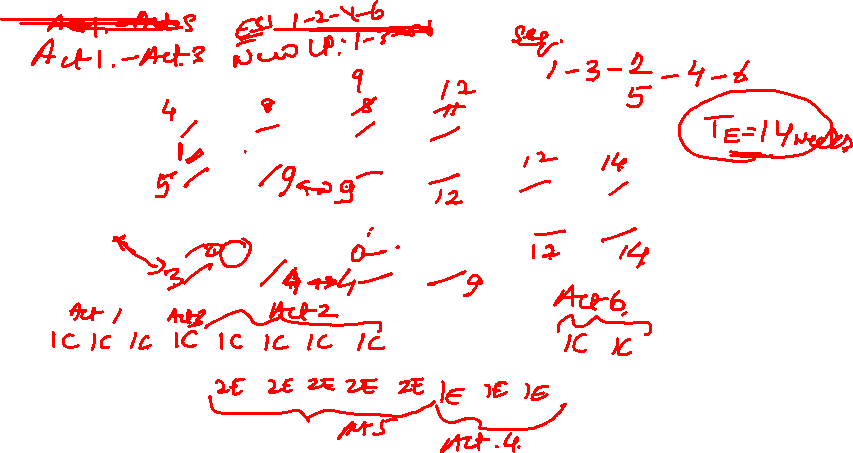 Act1. - Act3
ESJ 1-2-4-6
New LP: 1-3
Seq.
1-3-2/5-4-6
TE=14 weeks
4 8 9 8 12 11
1
5 9 ↔ 9 12 12 14
12 14
3 4 ↔ 4 9
0
Act 1 Act 2 Act 6
1C 1C 1C 1C 1C 1C 1C 1C 1C 1C
2E 2E 2E 2E 2E 1E 1E 1E
Act 5 Act. 4